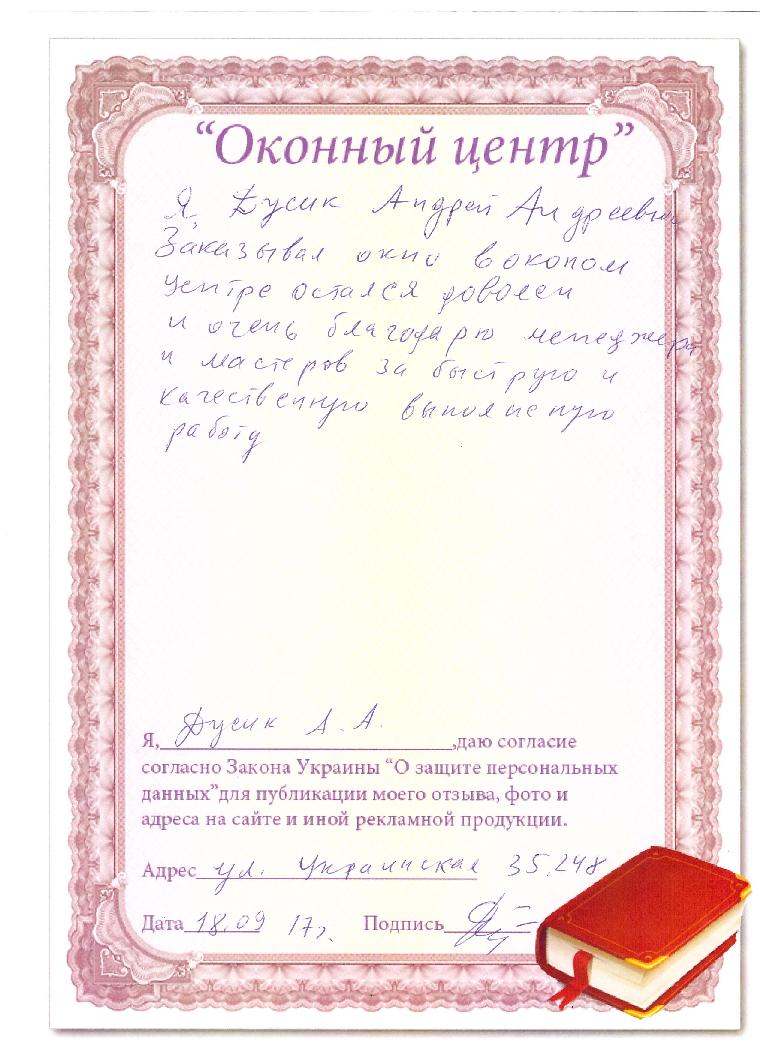 “Оконный центр”
Я, Дусик Андрей Андреевич
Заказывал окно в оконом
центре остался доволен
и очень благодарю менеджера
и мастеров за быструю и
качественную выполненую
работу
Я, Дусик А. А. ,даю согласие
согласно Закона Украины “О защите персональных
данных”для публикации моего отзыва, фото и
адреса на сайте и иной рекламной продукции.
Адрес ул. Украинская 35.248
Дата 18.09 17г. Подпись